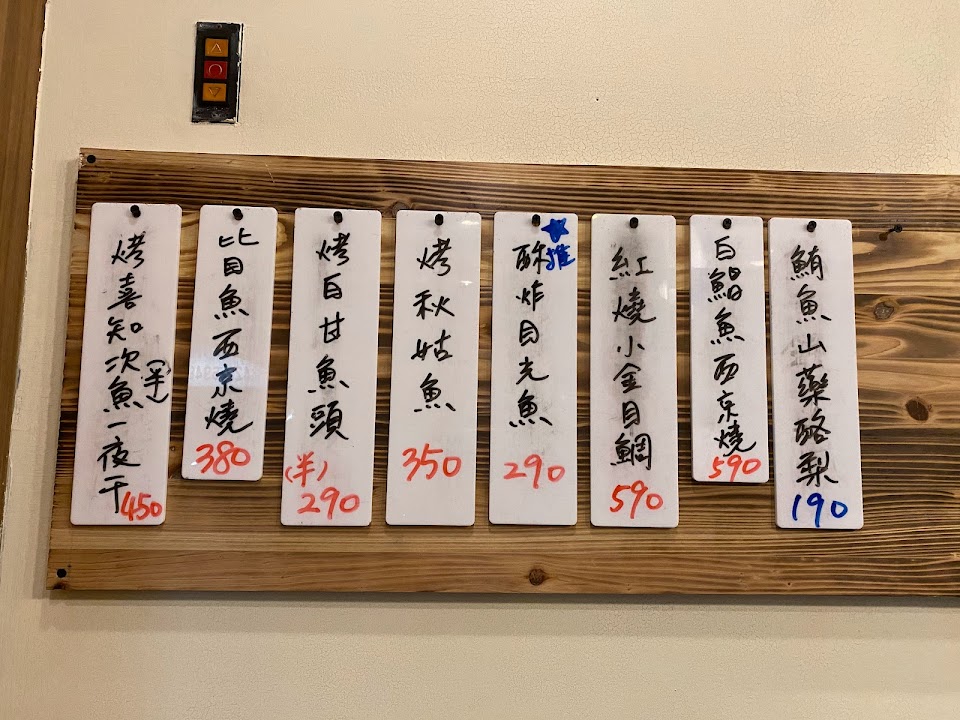 烤喜知次魚一夜干
(半)
450
比目魚西京燒
380
烤白甘魚頭
(半)
290
烤秋姑魚
350
★推
酥炸目光魚
290
紅燒小金目鯛
590
白鯧魚西京燒
590
鮪魚山藥酪梨
190